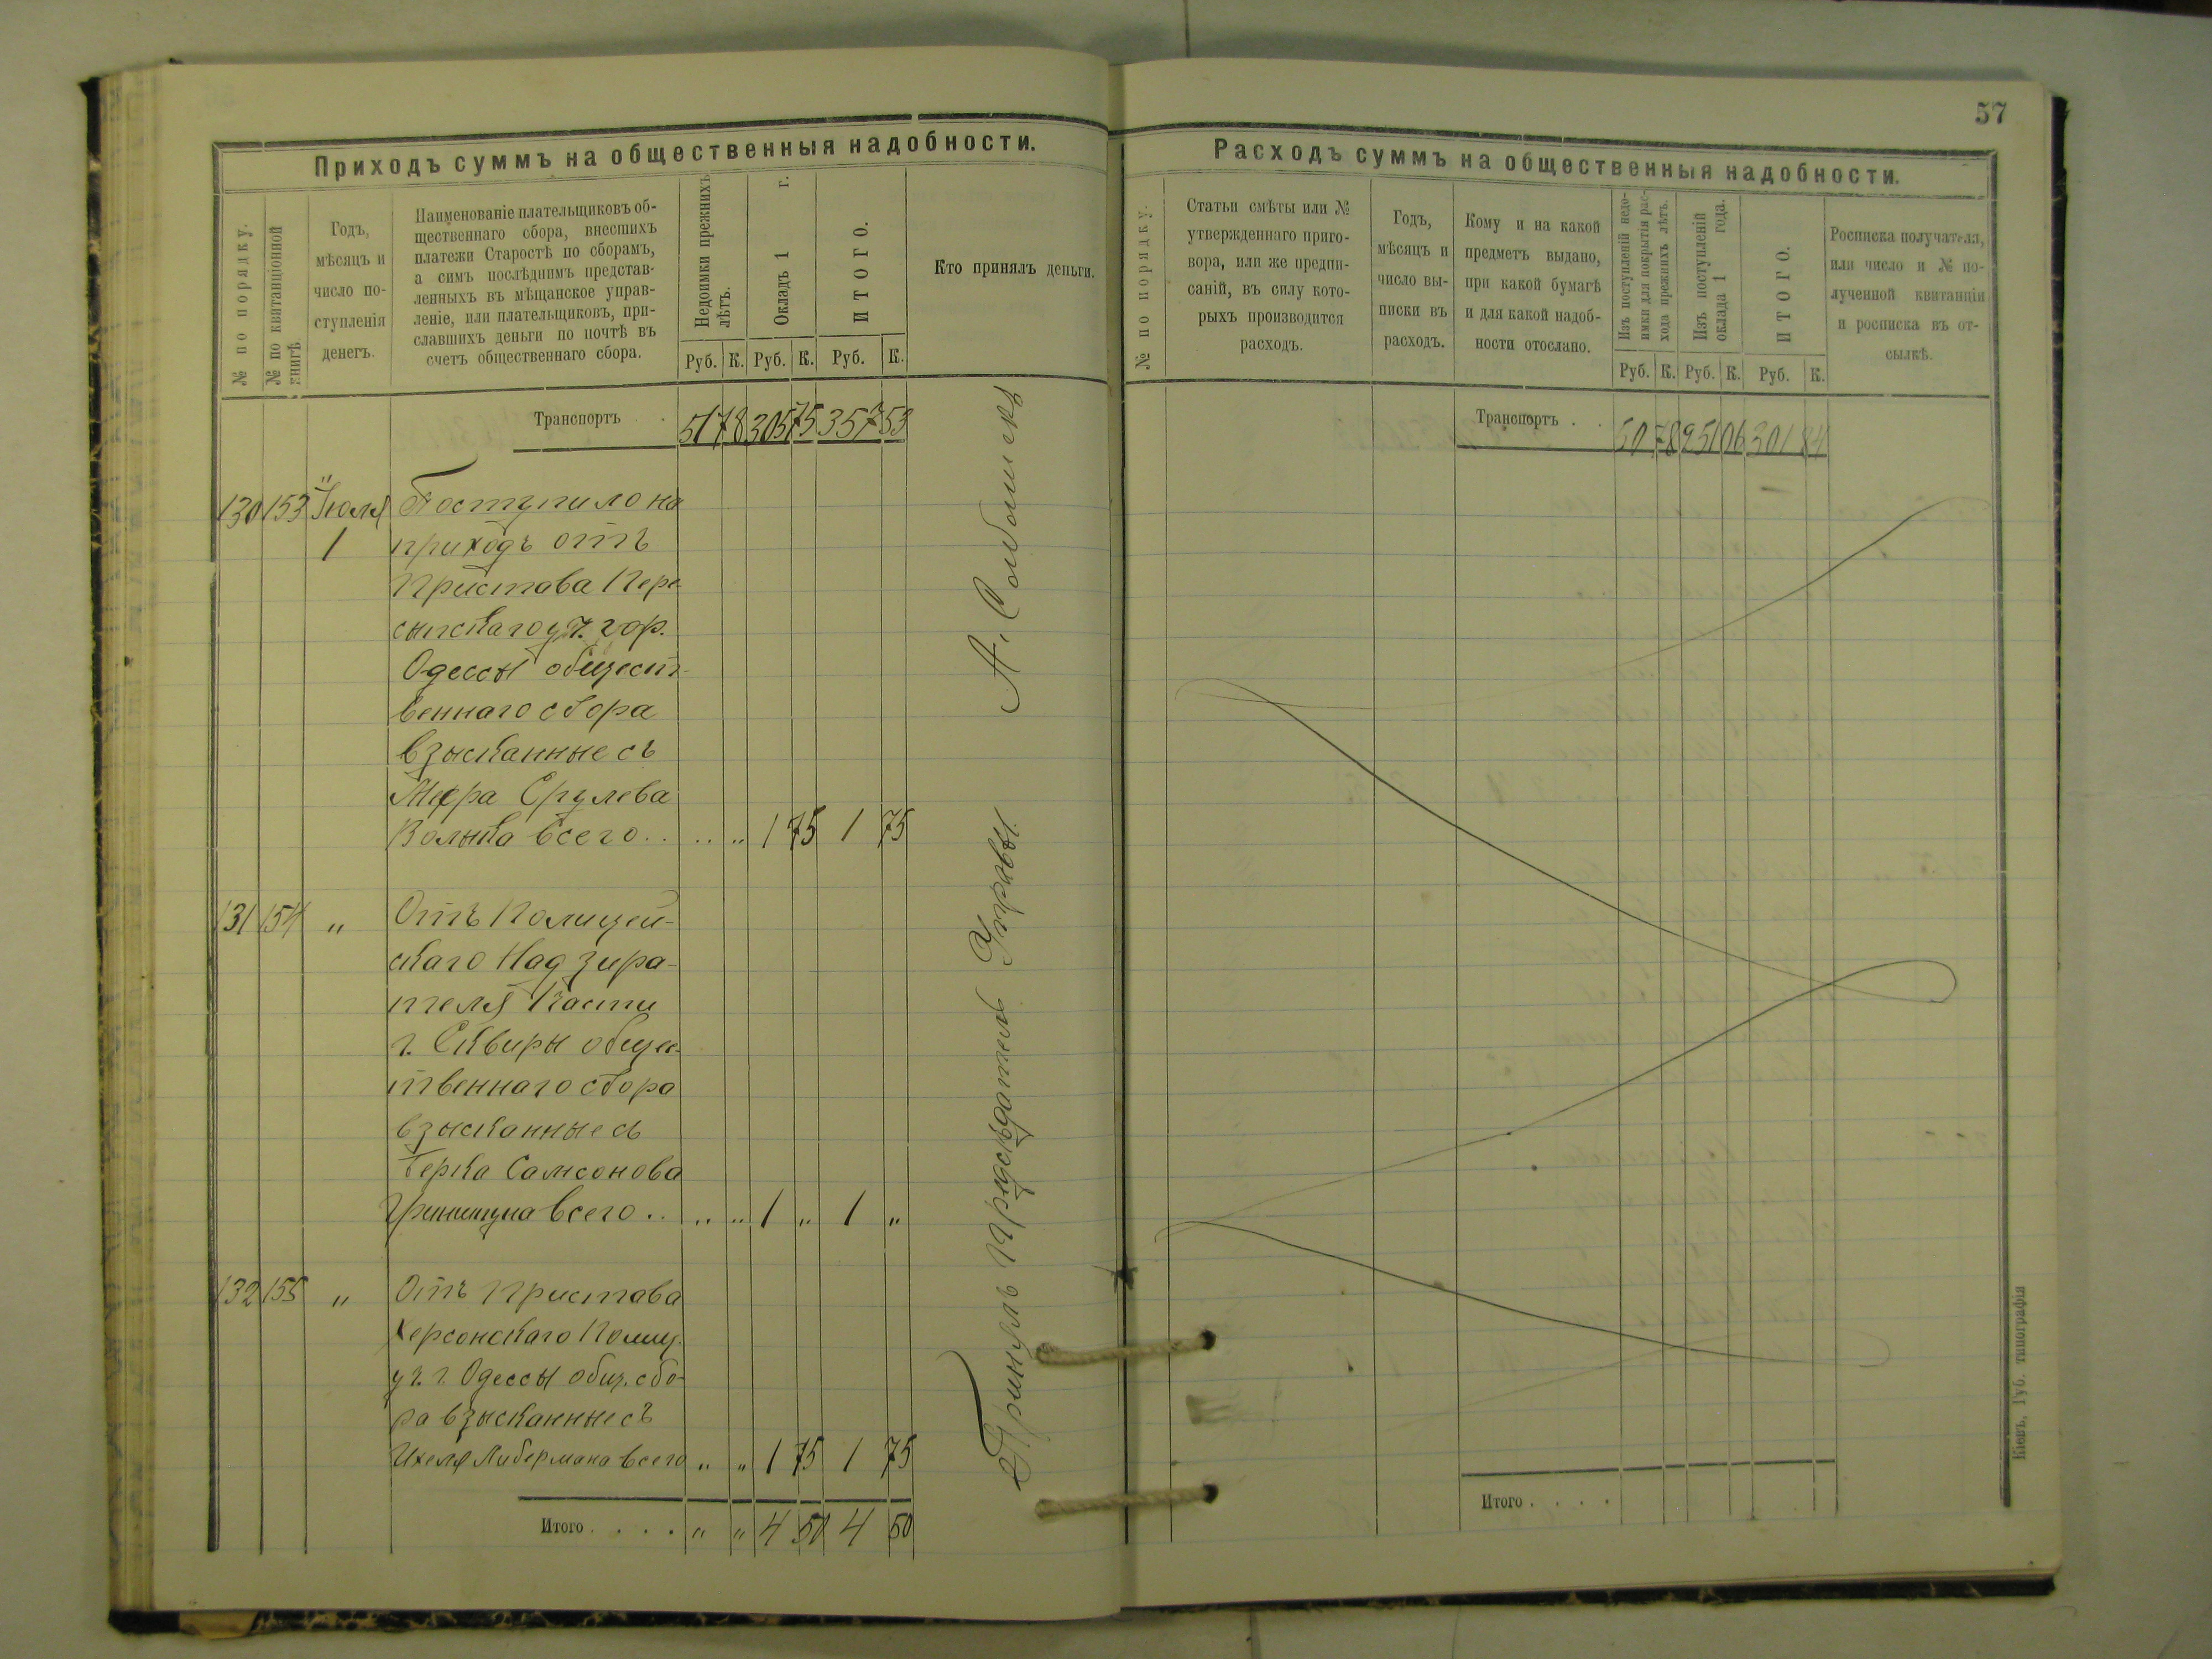 Приходъ суммъ на общественныя надобности.
№ по порядку.
№ по квитанціонной
книгѣ.
Годъ,
мѣсяцъ и
число по-
ступленія
денегъ.
Наименованіе плательщиковъ об-
щественнаго сбора, внесшихъ
платежи Старостѣ по сборамъ,
а симъ послѣднимъ представ-
ленныхъ въ мѣщанское управ-
леніе, или плательщиковъ, при-
славшихъ деньги по почтѣ въ
счетъ общественнаго сбора.
Недоимки прежнихъ
лѣтъ.
Окладъ 1 г.
ИТОГО.
Кто принялъ деньги.
Руб. К. Руб. К. Руб. К.
Транспортъ . 51 78 305 75 357 53
130 153 Іюля Поступило на
1 приходъ отъ
Пристава Пере-
сыпскаго уч. гор.
Одессы общест-
веннаго сбора
взысканные съ
Меера Срулева
Волька всего . . „ „ 1 75 1 75
131 154 „ Отъ Полицей-
скаго Надзира-
теля Части
г. Сквиры общес-
твеннаго сбора
взысканные съ
Берка Самсонова
всего . . „ „ 1 „ 1 „
132 155 „ Отъ Пристава
Херсонскаго Полиц.
уч. г. Одессы общ. сбо-
ра взысканные съ
Ихеля Либермана всего „ „ 1 75 1 75
Итого . . . . „ „ 4 50 4 50
Принялъ Предсѣдатель Управы
57
Расходъ суммъ на общественныя надобности.
№ по порядку.
Статьи смѣты или №
утвержденнаго приго-
вора, или же предпи-
саній, въ силу кото-
рыхъ производится
расходъ.
Годъ,
мѣсяцъ и
число вы-
писки въ
расходъ.
Кому и на какой
предметъ выдано,
при какой бумагѣ
и для какой надоб-
ности отослано.
Изъ поступленій недо-
имки для покрытія рас-
хода прежнихъ лѣтъ.
Изъ поступленій
оклада 1 года.
ИТОГО.
Росписка получателя,
или число и № по-
лученной квитанціи
и росписка въ от-
сылкѣ.
Руб. К. Руб. К. Руб. К.
Транспортъ . . 50 78 251 06 301 84
Итого . . . .
Кіевъ, Губ. типографія